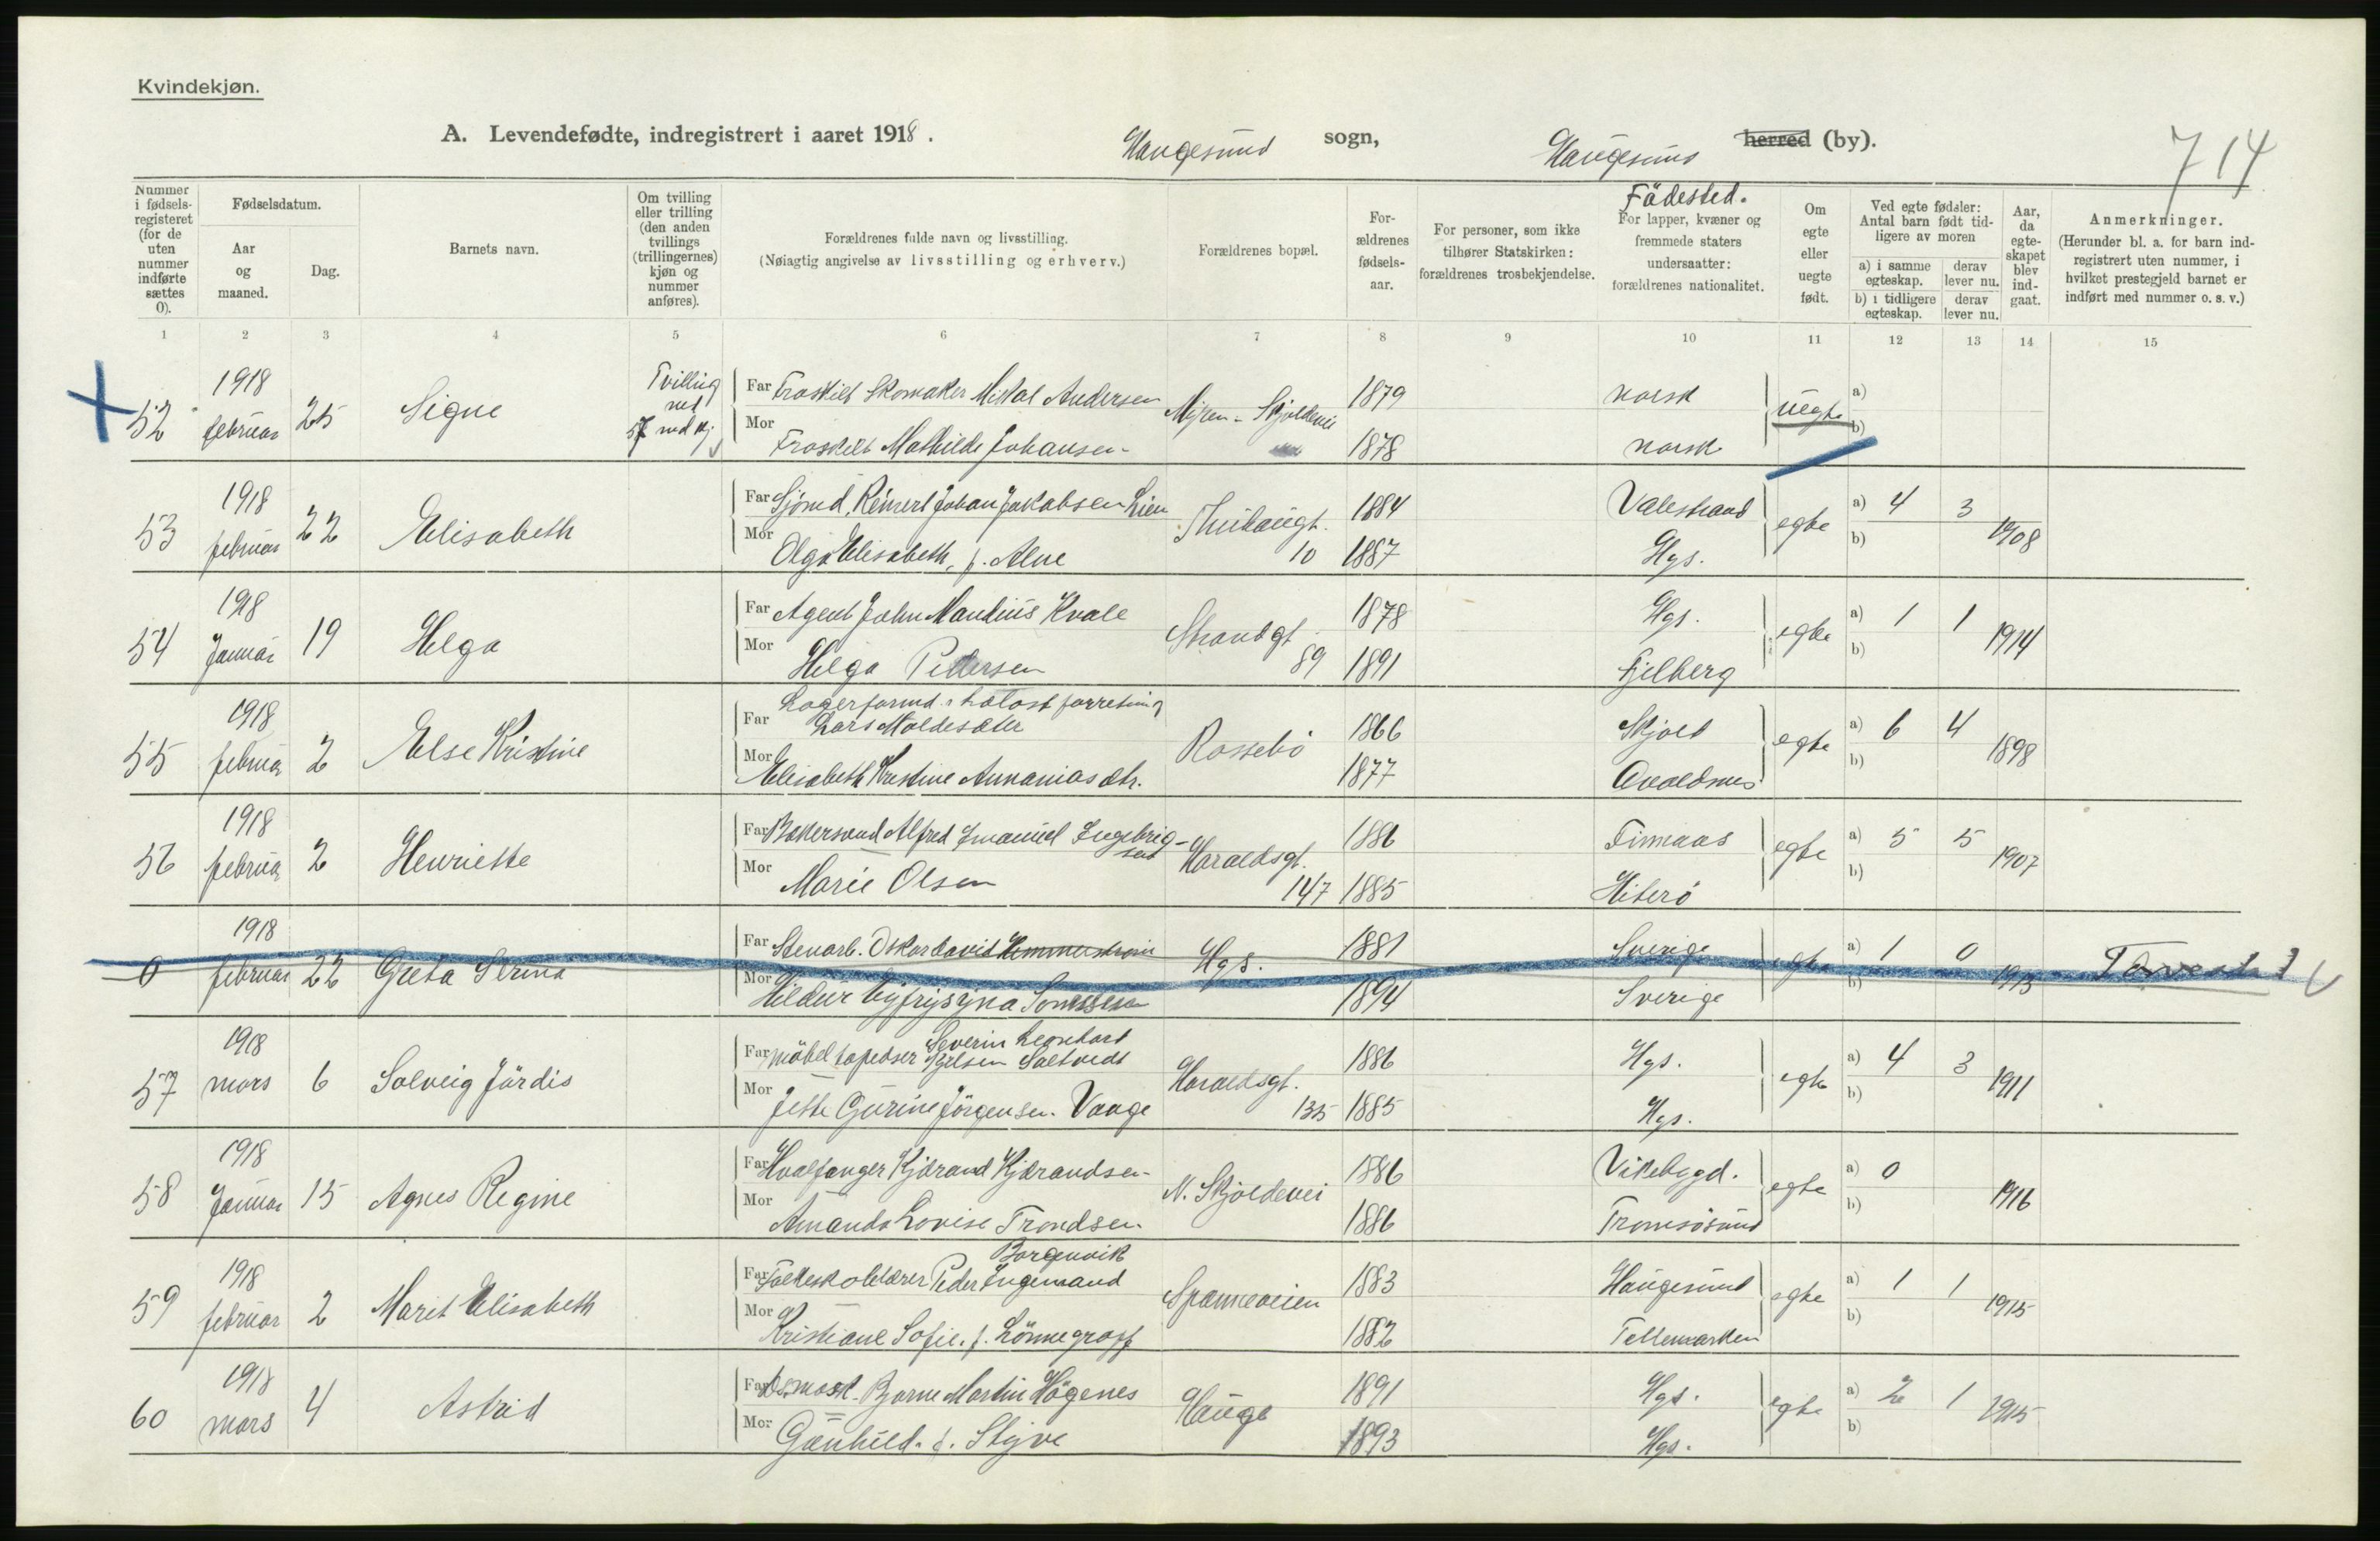 Kvindekjøn.
A. Levendefødte, indregistrert i aaret 1918.
Haugesund sogn, Haugesund herred (by).
714
Nummer i fødselsregisteret (for de uten nummer indførte sættes 0).
Fødselsdatum.
Aar og maaned.
Dag.
Barnets navn.
Om tvilling eller trilling (den anden tvillings (trillingernes) kjøn og nummer anføres).
Forældrenes fulde navn og livsstilling.
(Nøiagtig angivelse av livsstilling og erhverv.)
Forældrenes bopæl.
Forældrenes fødselsaar.
For personer, som ikke tilhører Statskirken: forældrenes trosbekjendelse.
Födested.
For lapper, kvæner og fremmede staters undersaatter: forældrenes nationalitet.
Om egte eller uegte født.
Ved egte fødsler: Antal barn født tidligere av moren
a) i samme egteskap.
derav lever nu.
b) i tidligere egteskap.
derav lever nu.
Aar, da egteskapet blev indgaat.
Anmerkninger.
(Herunder bl. a. for barn indregistrert uten nummer, i hvilket prestegjeld barnet er indført med nummer o. s. v.)
1 2 3 4 5 6 7 8 9 10 11 12 13 14 15
52 1918 februar 25 Signe Tvilling med 57 md kj
Far Fraskilt Skomaker Mikal Andersen 1879 norsk uegte a)
Mor Fraskilt Mathilde Johansen Skjoldevei 1878 norsk b)
53 1918 februar 22 Elisabeth
Far Sjömd. Reinert Johan Jakobsen Lien 1884 Valestrand egte a) 4 3 1908
Mor Olga Elisabeth, f. Alne 10 1887 Hgs. b)
54 1918 Januar 19 Helga
Far Agent John Mandius Kvale Strandgt. 89 1878 Hgs. egte a) 1 1 1914
Mor Helga Pedersen 1891 Fjelberg b)
55 1918 februar 2 Else Kristine
Far Lagerformd. Lars Moldesæter Rossebö 1866 Skjold egte a) 6 4 1898
Mor Elisabeth Kristine Annaniasdtr. 1877 Avaldsnes b)
56 1918 februar 2 Henriette
Far Bakersvend Alfred Imanuel Ingebrigsen Haraldsgt. 147 1886 Finnaas egte a) 5 5 1907
Mor Marie Olsen 1885 Hiterö b)
0 1918 februar 22 Greta
Far Stenarb. Oskar David Hgs. 1881 Sverige egte a) 1 0 1913 Torvestad
Mor Hildur 1894 Sverige b)
57 1918 mars 6 Solveig Jördis
Far möbeltapetser Severin Leonhard Kjelsen Saltvedt Haraldsgt. 135 1886 Hgs. egte a) 4 3 1911
Mor Jette Gurine Jörgensen Vaage 1885 Hgs. b)
58 1918 Januar 15 Agnes Regine
Far Hvalfanger Kjærand Kjærandsen N. Skjoldevei 1886 Vikebygd. egte a) 0 1916
Mor Amanda Lovise Trondsen 1886 Tromsösund b)
59 1918 februar 2 Marit Elisabeth
Far Folkeskolelærer Peder Ingemand Borgenvik Spanneveien 1883 Haugesund egte a) 1 1 1915
Mor Kristiane Sofie. f. Lönnegraff 1882 Tellemarken b)
60 1918 mars 4 Astrid
Far Bjarne Martin Högenes Hauge 1891 Hgs. egte a) 2 1 1915
Mor Gunhild. f. Styve 1893 Hgs. b)